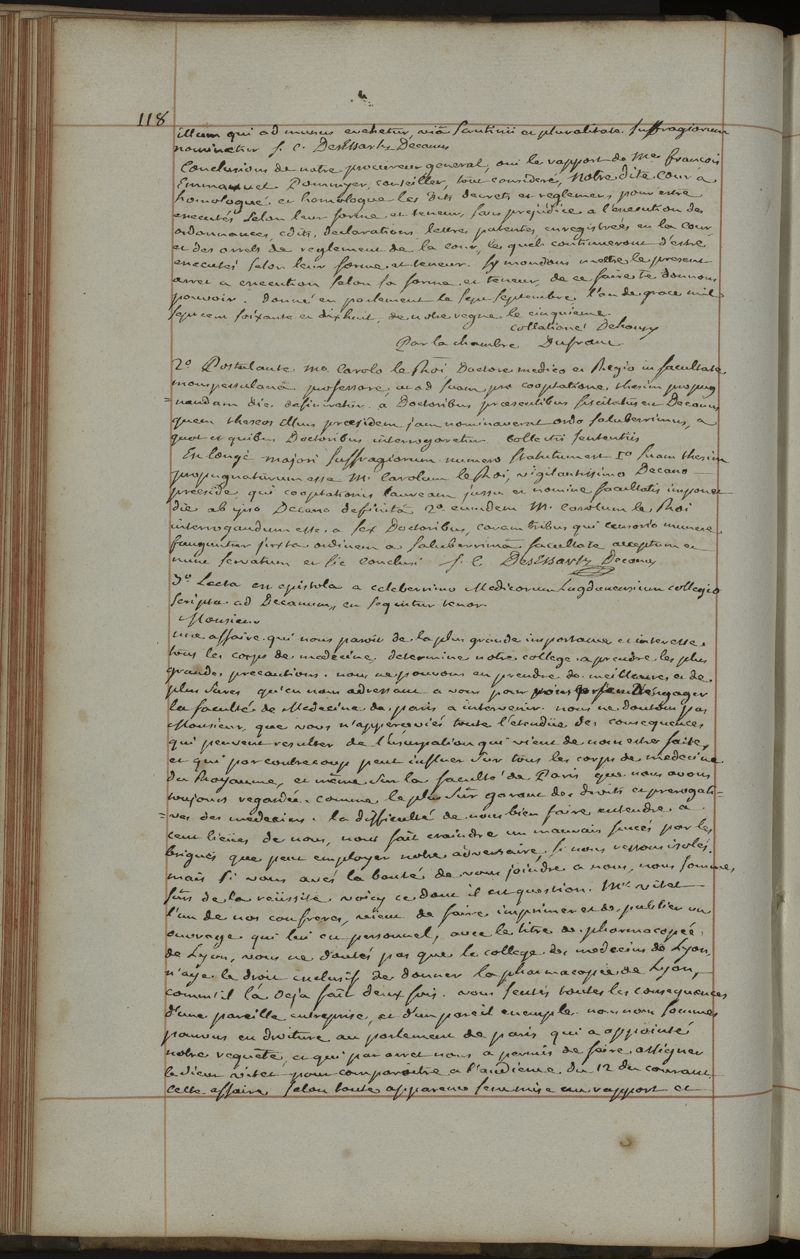 118
illum qui ad munus evehetur, viâ scrutinii et pluralitate suffragiorum
nominetur s. c. DesEssartz Decanus
Conclusions de notre procureur general, oui le rapport de Me françois
Emmanuel Pommyer, conseiller, tout consideré, Notre dite cour a
homologué, et homologue les dits decrets et reglemens, pour estre
executés selon leur forme et teneur, sans prejudice a l'execution des
ordonnances, edits, declarations, lettres patentes enregistrées en la cour,
et des arrets de reglement de la cour, lesquels continueront d'estre
executés selon leur forme et teneur. Sy mandons mettre le present
arret a execution selon sa forme et teneur, de ce faire te donnons
pouvoir. donné en parlement le sept septembre l'an de grace mil
sept cent soixante et dix huit, de notre regne le cinquieme.
collationé Dehoury
Par la chambre Dufranc
2º Postulante Mo. Carolo le Roi Doctore medico et Regio in facultate
monspessulanâ professore, ut ad suam pro cooptatione thesim propug
=nandam dies definiretur a Doctoribus praesentibus sciscitatus est Decanus
quem theseos illius praesidem jam nominaverat ordo saluberrimus, a
quot et quibus Doctoribus interrogaretur. Collectis sententiis
Ex longè majori suffragiorum numero statutum est 1º suam thesim
propugnaturum esse M. Carolum le Roi, vigilantissimo Decano
praeside, qui cooptationis lauream jussu et nomine facultatis imponet
die ab ipso Decano definitâ 2º eumdem M. Carolum le Roi
interrogandum esse a sex Doctoribus, coram tribus qui censorio munere
funguntur juxta ordinem a saluberrimâ facultate acceptum et
nunc servatum et sic conclusi s. c. DesEssartz Decanus
3º Lecta est epistola a celeberrimo Medicorum Lugdunensium collegio
scripta ad Decanum, en sequitur tenor.
Monsieur
une affaire qui nous paroit de la plus grande importance et interesse
tous les corps de medecine, determine notre college a prendre les plus
grandes precautions. nous ne pouvons en prendre de meilleures et de
plus sures qu'en nous adressant a vous pour engager
la faculté de Medecine de paris a intervenir. nous ne doutons pas
Monsieur, que vous n'apperceviés toute l'étendüe des consequences
qui peuvent resulter de l'usurpation qui vient de nous estre faite,
et qui par contrecoup peut influer sur tous les corps de medecine
du Royaume, et même sur la faculté de Paris que nous avons
toujours regardée comme le plus sûr garant des droits et prerogati=
=ves des medecins. la difficulté de nous bien faire entendre a
cent lieües de nous, nous fait craindre un mauvais succés par les
brigues que peut employer notre adversaire, si nous restons isolés.
mais si vous avés la bonté de vous joindre a nous, nous sommes
sûrs de la reüssite. voicy ce dont il est question. Mr. vitet
l'un de nos confreres, vient de faire imprimer et de publier un
ouvrage qui lui est personnel, avec le titre de pharmacopée
de Lyon, vous ne doutés pas que le college des medecins de Lyon
n'aye le droit exclusif de donner la pharmacopée de Lyon,
comm'il l'a deja fait deux fois. vous sentés toutes les consequences
d'une pareille entreprise, et d'un pareil exemple. nous nous sommes
pourvus en droiture au parlement de paris qui a appointé
notre requête, et qui par arret nous a permis de faire assigner
le sieur vitet pour comparoitre a l'audience du 12 du courant.
cette affaire selon toute apparence sera mise en rapport et